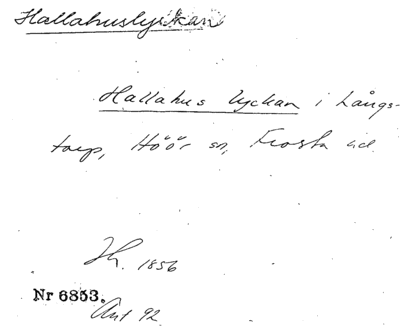 Hallahuslyckan
Hallahus lyckan i Långs-
torp, Höör sn, Frosta hd.
Jh. 1856
Nr 6853.
Ant 92